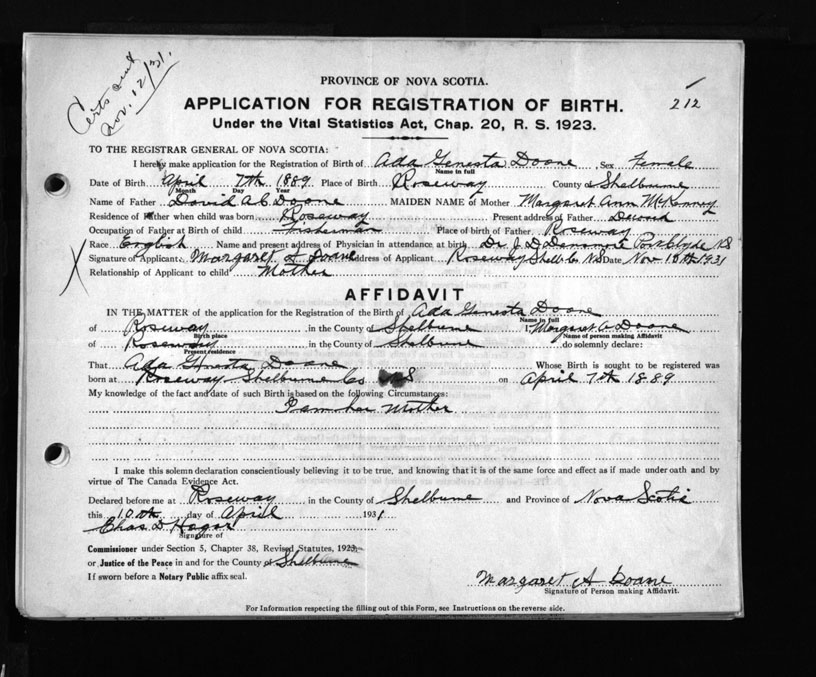 Certs sent
Nov. 12/31.
212
PROVINCE OF NOVA SCOTIA.
APPLICATION FOR REGISTRATION OF BIRTH.
Under the Vital Statistics Act, Chap. 20, R. S. 1923.
TO THE REGISTRAR GENERAL OF NOVA SCOTIA:
I hereby make application for the Registration of Birth of Ada Genesta Doane , Sex Female
Name in full
Date of Birth April 7th 1889 Place of Birth Roseway County of Shelburne
Month Day Year
Name of Father David A C Doane MAIDEN NAME of Mother Margaret Ann McKenney
Residence of Father when child was born Roseway Present address of Father
Occupation of Father at Birth of child Fisherman Place of birth of Father Roseway
Race English Name and present address of Physician in attendance at birth Dr. J D Densmore Port Clyde NS
Signature of Applicant Margaret A Doane Address of Applicant Roseway Shelb Co NS Date Nov 10th 1931
Relationship of Applicant to child Mother
AFFIDAVIT
IN THE MATTER of the application for the Registration of the Birth of Ada Genesta Doane
Name in full
of Roseway in the County of Shelburne I, Margaret A Doane
Birth place Name of person making Affidavit
of Roseway in the County of Shelburne do solemnly declare:
Present residence
That Ada Genesta Doane Whose Birth is sought to be registered was
born at Roseway Shelburne Co NS on April 7th 1889
My knowledge of the fact and date of such Birth is based on the following Circumstances:
I am her Mother
I make this solemn declaration conscientiously believing it to be true, and knowing that it is of the same force and effect as if made under oath and by
virtue of The Canada Evidence Act.
Declared before me at Roseway in the County of Shelburne and Province of Nova Scotia
this 10th day of April 1931
Chas D Hagar
Signature of
Commissioner under Section 5, Chapter 38, Revised Statutes, 1923,
or Justice of the Peace in and for the County of Shelburne
If sworn before a Notary Public affix seal.
Margaret A Doane
Signature of Person making Affidavit.
For Information respecting the filling out of this Form, see Instructions on the reverse side.